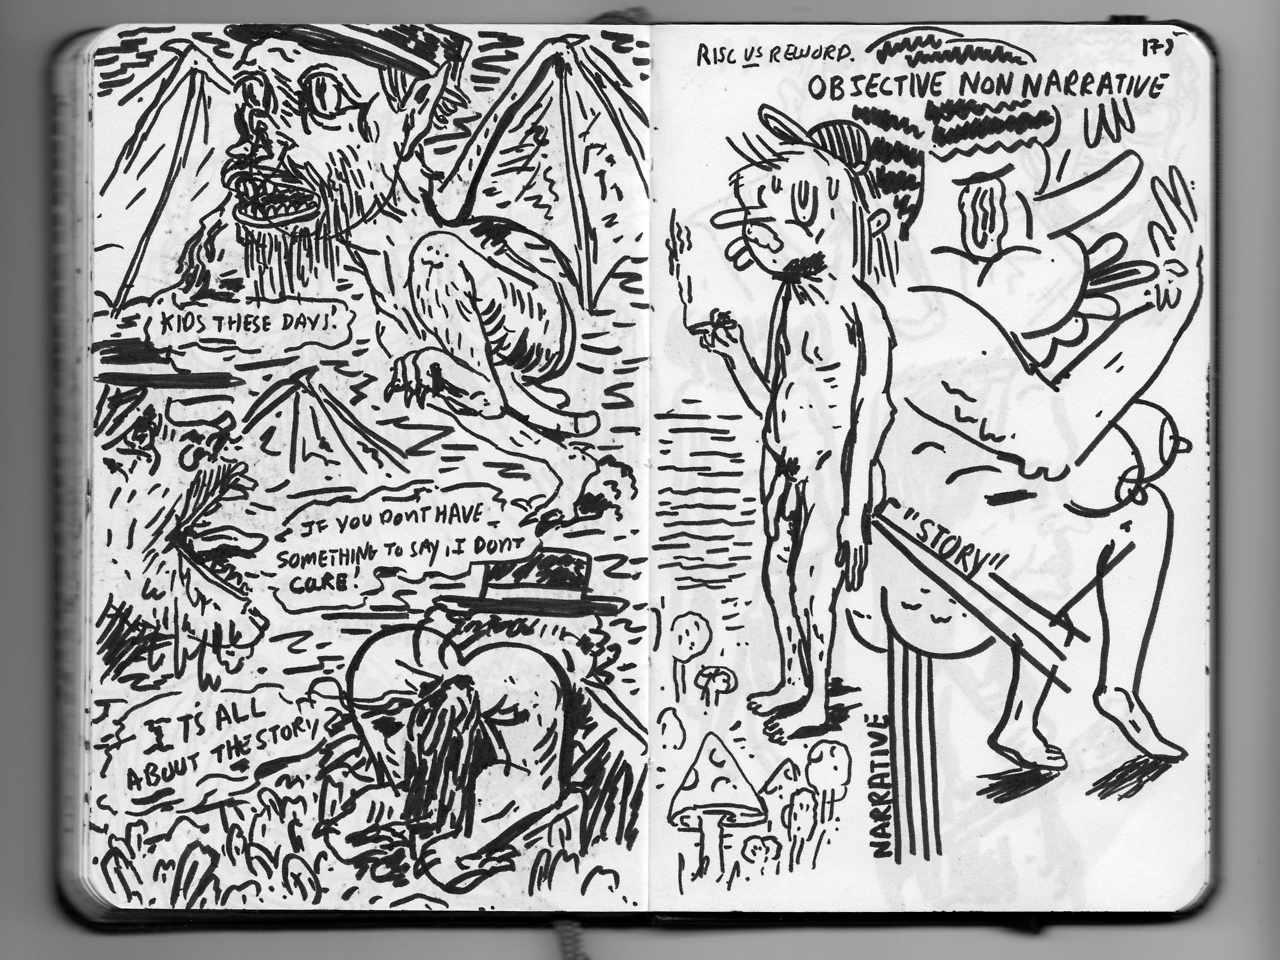 KIDS THESE DAYS!
IF YOU DONT HAVE
SOMETHING TO SAY, I DONT
CARE!
ITS ALL
ABOUT THE STORY
RISC VS REWORD.
178
OBJECTIVE NON NARRATIVE
"STORY"
NARRATIVE